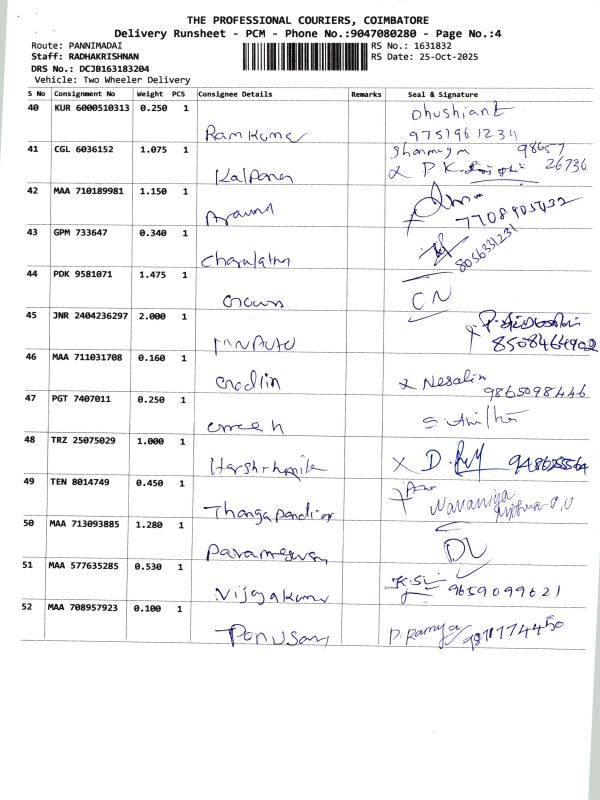 THE PROFESSIONAL COURIERS, COIMBATORE
Delivery Runsheet - PCM - Phone No.:9047080280 - Page No.:4
Route: PANNIMADAI
RS No.: 1631832
Staff: RADHAKRISHNAN
RS Date: 25-Oct-2025
DRS No.: DCJB163183204
Vehicle: Two Wheeler Delivery
S No Consignment No Weight PCS Consignee Details Remarks Seal & Signature
40 KUR 6000510313 0.250 1
Ramkumar
Dhushiant
9751961234
41 CGL 6036152 1.075 1
Kalpana
Shanmugam 98657
26736
42 MAA 710189981 1.150 1
Aravind
7708905432
43 GPM 733647 0.340 1
Charulatha
8056331231
44 PDK 9581071 1.475 1
CN
45 JNR 2404236297 2.000 1
Auto
8508464902
46 MAA 711031708 0.160 1
x Nesalin
9865098446
47 PGT 7407011 0.250 1
48 TRZ 25075029 1.000 1
49 TEN 8014749 0.450 1
Thangapandian
50 MAA 713093885 1.280 1
Parameswari
DL
51 MAA 577635285 0.530 1
Vijayakumar
9659099621
52 MAA 708957923 0.100 1
Ponusamy
P. Ramya